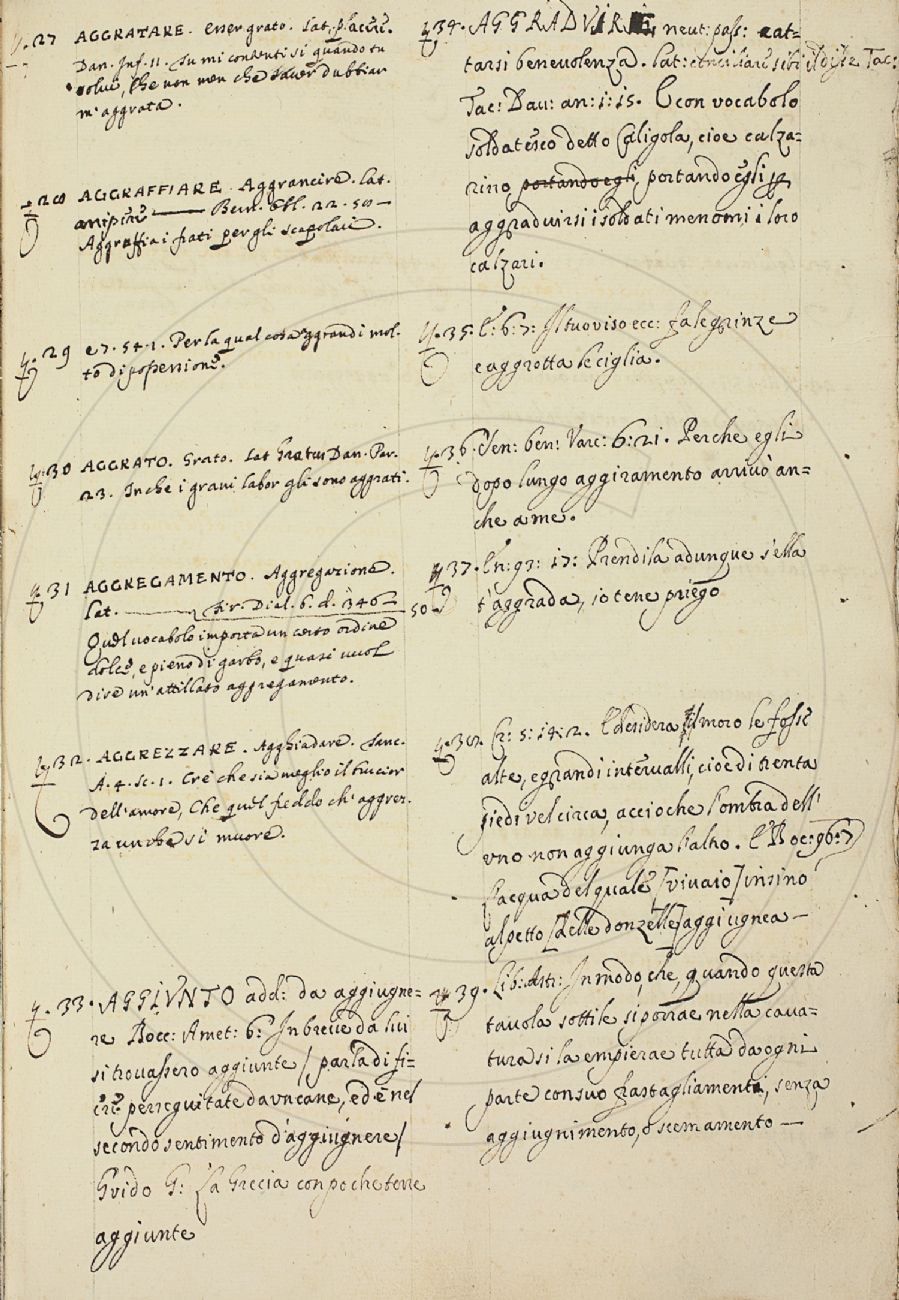 27 AGGRATARE. Esser grato. Lat. placere.
Dan. Inf. 11. Tu mi contenti si quando tu
solvi, Che non men che saver dubbiar
m'aggrata.
28 AGGRAFFIARE. Aggrancire. Lat.
arripere —— Bern. Orl. 22. 50 —
Aggraffia i frati per gli scapolari.
29 e 7. 54. 1. Per la qual cosa aggrandì mol-
to di possessione.
30 AGGRATO. Grato. Lat Gratus Dan. Par.
23. In che i gravi labor gli sono aggrati.
31 AGGREGAMENTO. Aggregazione.
Lat. —— Fir. Dial. b. d. 346 — 50
Quel vocabolo importa un certo ordine
dolce, e pieno di garbo, e quasi vuol
dire un'attillato aggregamento.
32. AGGREZZARE. Agghiadare.
A. 4. sc. 1. Cre' che sia meglio il bucior
dell'amore, Che quel freddo ch'aggrez-
za un che si muore.
33. AGGIVNTO add: da aggiugne-
re Bocc: Amet: 6: In breve da lui
si trovassero aggiunte / parla di fi-
ere perseguitate da un cane, ed è nel
secondo sentimento d'aggiugnere /
Guido G: La Grecia con poche terre
aggiunte
34. AGGRADVIRE, neut: pass: cat-
tarsi benevolenza. Lat: conciliare sibi
Tac: Dav: an: 1: 15. E con vocabolo
soldatesco detto Caligola, cioe calza-
rino portando egli, portando egli p
aggraduirsi i soldati menomi i loro
calzari.
35. C: 6: 7: Il tuo viso ecc: fa le grinze
e aggrotta le ciglia.
36. Sen: ben: Varc: 6: 21. Perche egli
dopo lungo aggiramento arrivò an=
che a me.
37. In: 93: 17: Prendila adunque s'ella
t'aggrada, io te ne priego
38. Cr: 5: 14: 2. E desidera il moro le fosse
alte, e grandi intervalli, cioè di trenta
piedi vel circa, accioche l'ombra dell'
uno non aggiunga l'altro. E Boc: g6: 7
L'acqua del quale [vivaio] insino
al petto [delle donzelle] aggiugnea —
39. Lib: Astr: In modo, che, quando questa
tavola sottile si porrae nella cava=
tura si la empierae tutta da ogni
parte con suo frastagliamento, senza
aggiugnimento, o scemamento —